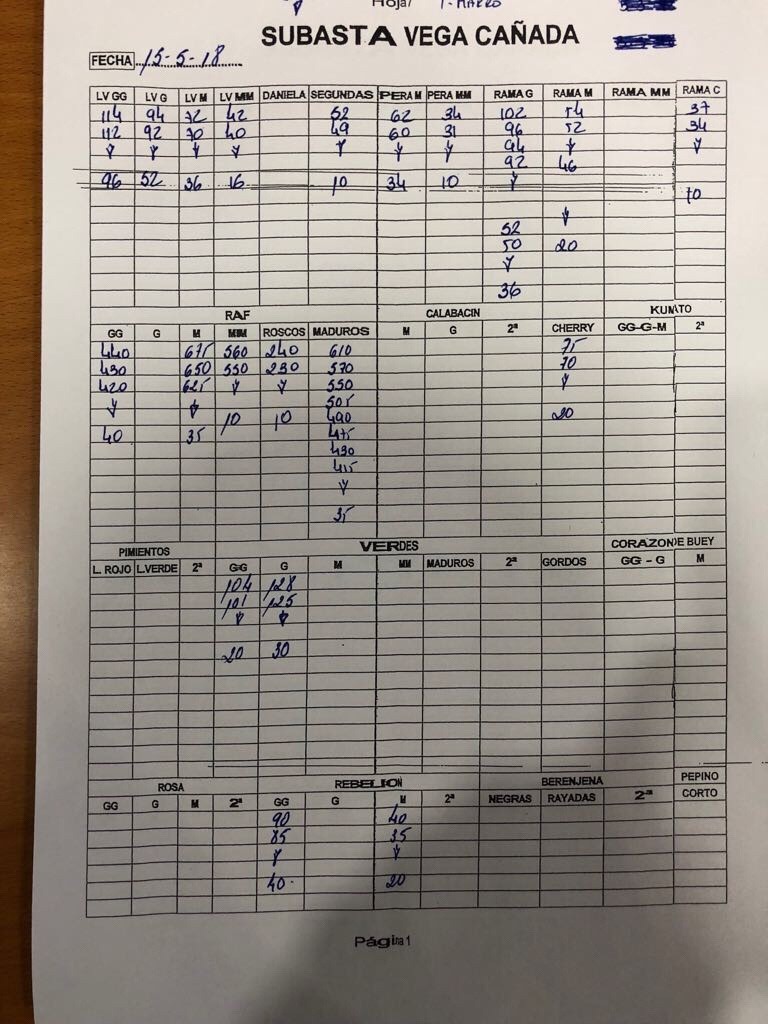 Hoja/ 1-MARZO
SUBASTA VEGA CAÑADA
FECHA 15-5-18
LV GG LV G LV M LV MM DANIELA SEGUNDAS PERA M PERA MM RAMA G RAMA M RAMA MM RAMA C
114 94 72 42 52 62 34 102 54 37
112 92 70 40 49 60 31 96 52 34
94
92 46
96 52 36 16 10 34 10
10
52
50 20
36
RAF CALABACIN KUMATO
GG G M MM ROSCOS MADUROS M G 2ª CHERRY GG-G-M 2ª
440 675 560 240 610 75
430 650 550 230 570 70
420 625 550
505
10 10 490 20
40 35 475
430
415
35
PIMIENTOS VERDES CORAZON DE BUEY
L. ROJO L.VERDE 2ª GG G M MM MADUROS 2ª GORDOS GG - G M
104 128
101 125
20 30
ROSA REBELION BERENJENA PEPINO
GG G M 2ª GG G M 2ª NEGRAS RAYADAS 2ª CORTO
90 40
85 35
40 20
Página 1